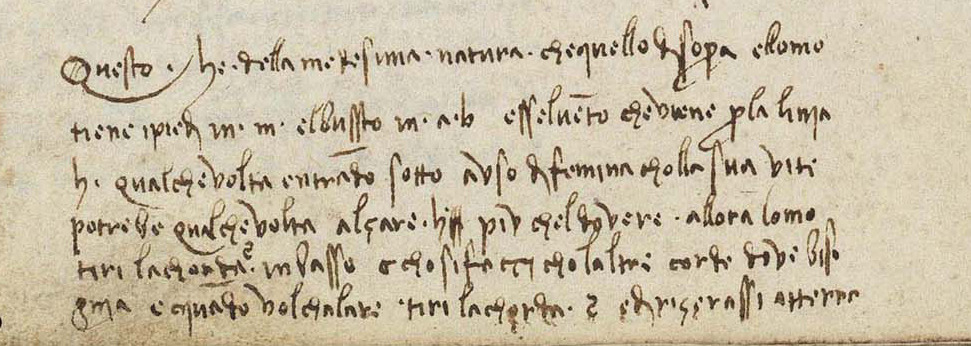 Questo · he · della medesima · natura · chequello dj sopra ellomo
tiene ipiedj in · m · elbussto in · a · b esseluēto cheviene p la linja
h · qualchevolta entrādo sotto auso dj femina cholla sua vite
potrebe qualchevolta alçare · h piv cheldovere · allora lomo
tiri lachorda · inbasso e chosi facci cholaltre corde dove biso
gnia e quādo volchalare · tiri lachorda · ediriçerassi atterra